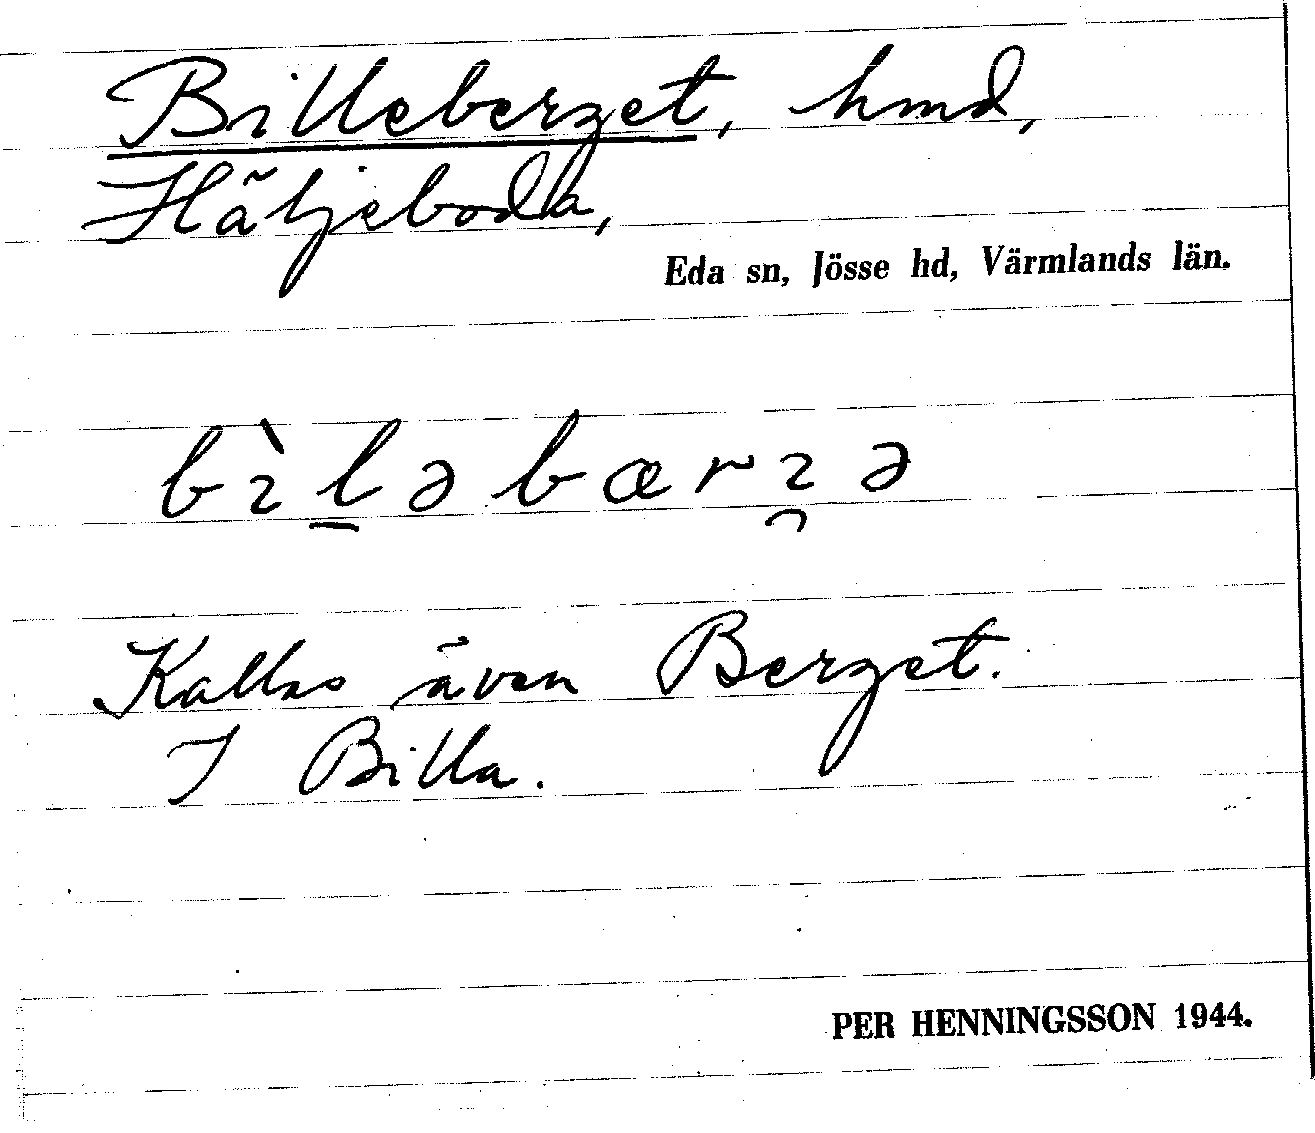 Billeberget, hmd,
Häljeboda,
Eda sn, Jösse hd, Värmlands län.
bìl̲əbærı̯ə
Kallas även Berget.
I Billa.
PER HENNINGSSON 1944.